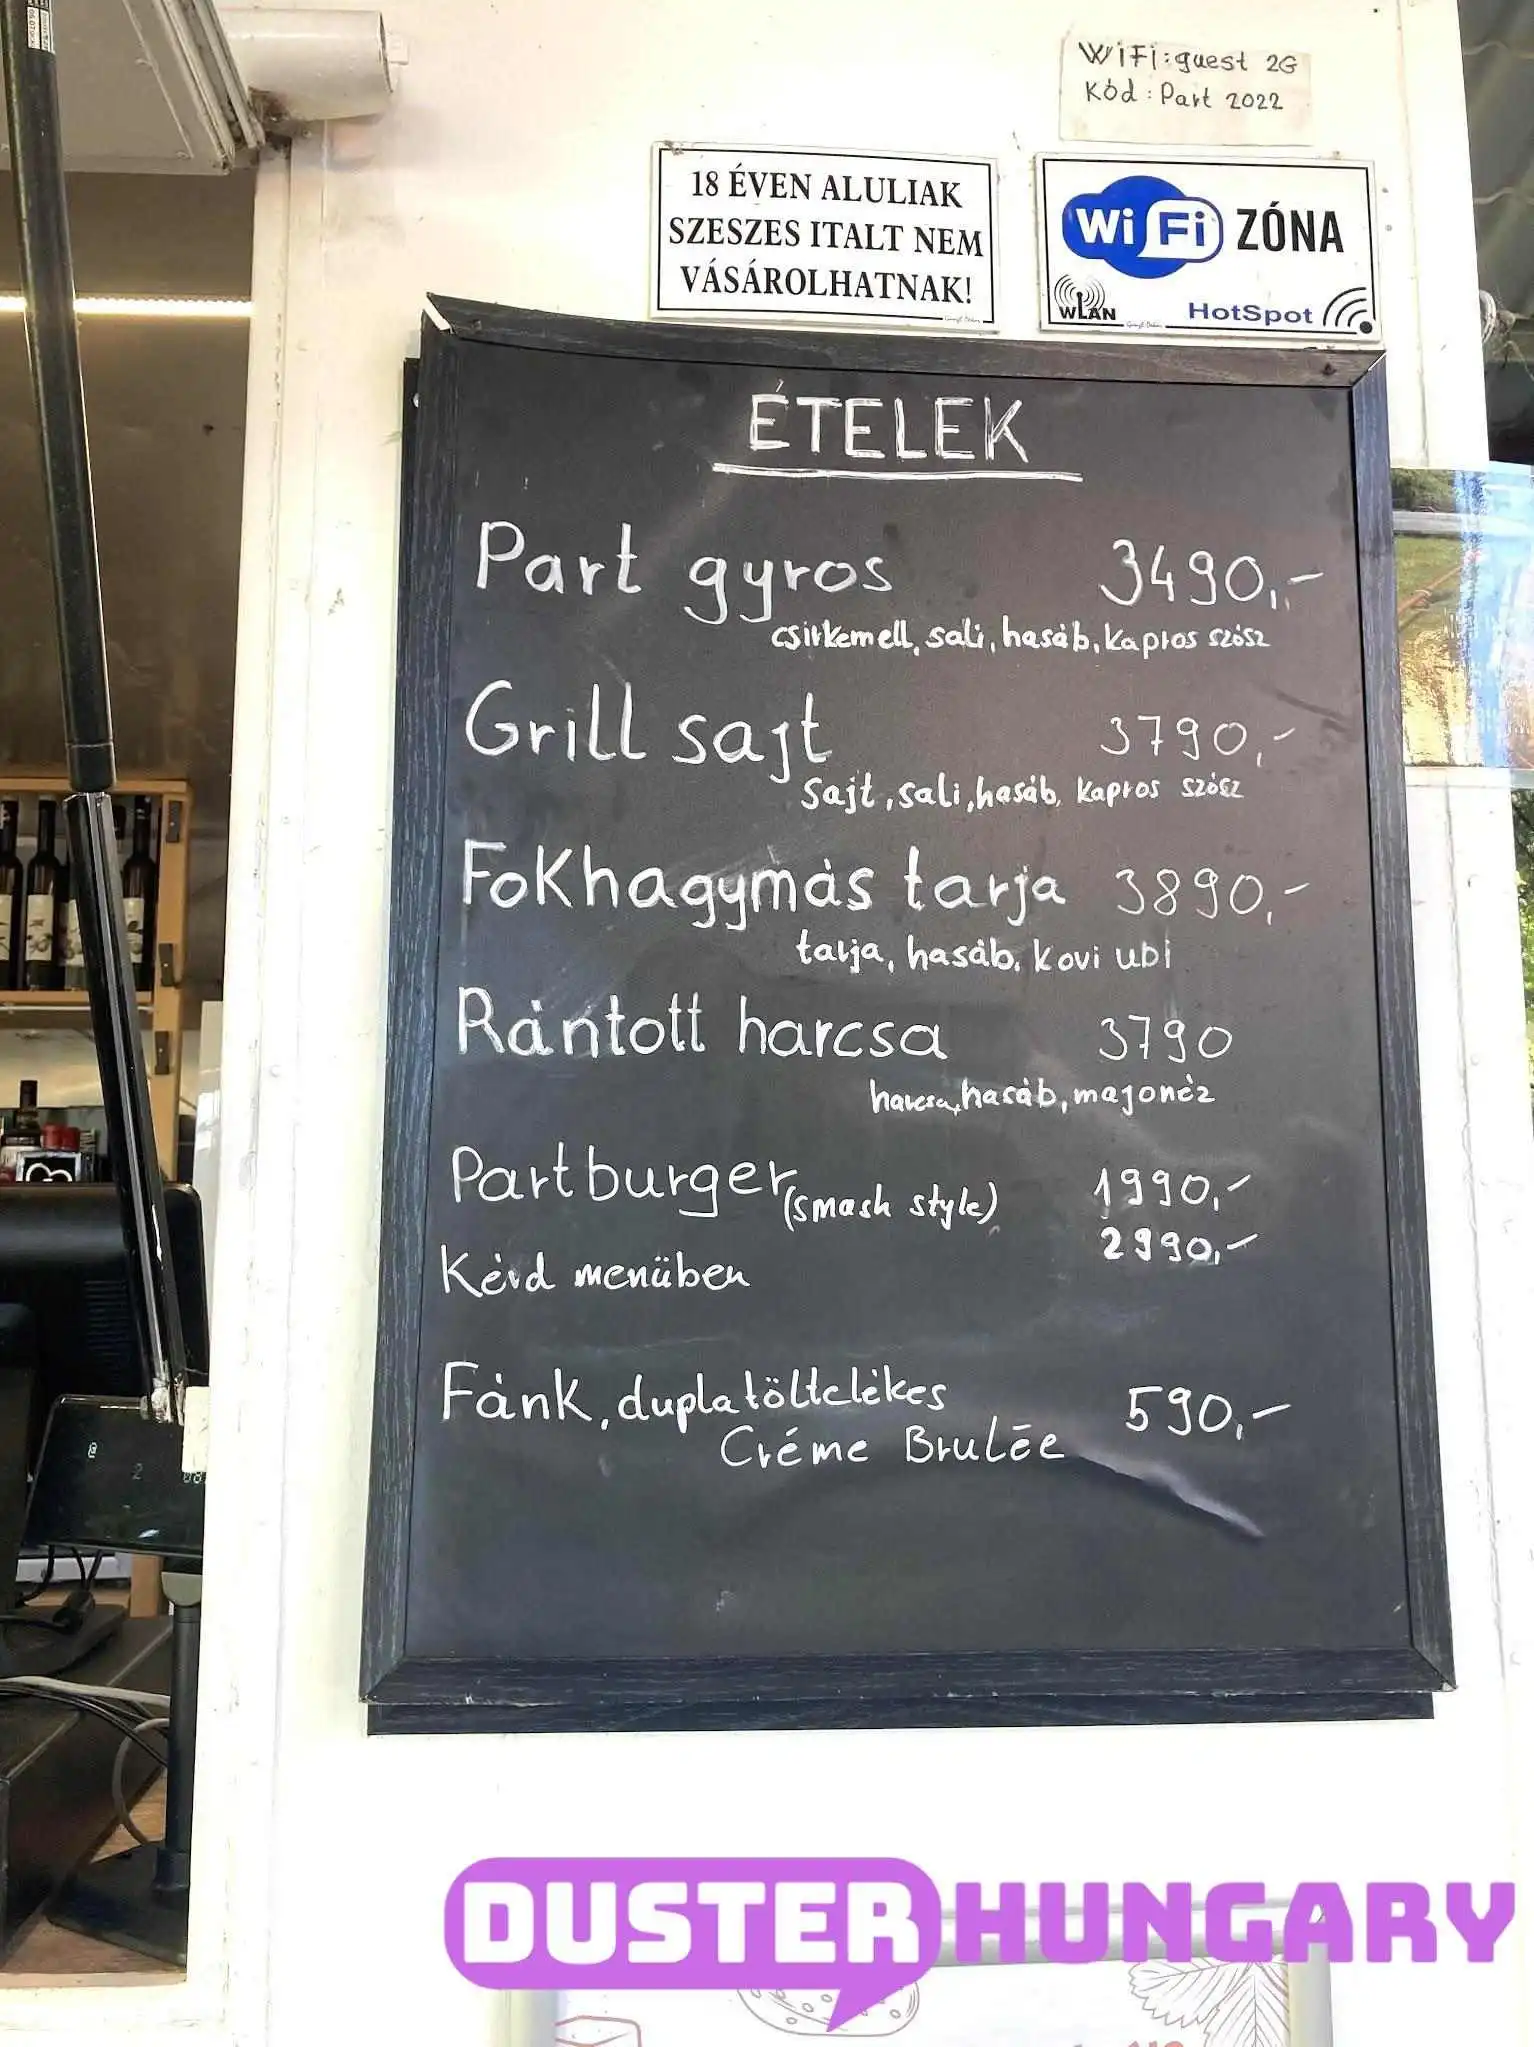 WiFi: guest 2G
Kód: Part 2022
18 ÉVEN ALULIAK
SZESZES ITALT NEM
VÁSÁROLHATNAK!
WiFi ZÓNA
WLAN
HotSpot
ÉTELEK
Part gyros 3490,-
csirkemell, sali, hasáb, kapros szósz
Grill sajt 3790,-
Sajt, sali, hasáb, kapros szósz
Fokhagymás tarja 3890,-
tarja, hasáb, kovi ubi
Rántott harcsa 3790
harcsa, hasáb, majonéz
Partburger (smash style) 1990,-
Kérd menüben 2990,-
Fánk, duplatöltelékes 590,-
Créme Brulēe
DUSTER HUNGARY